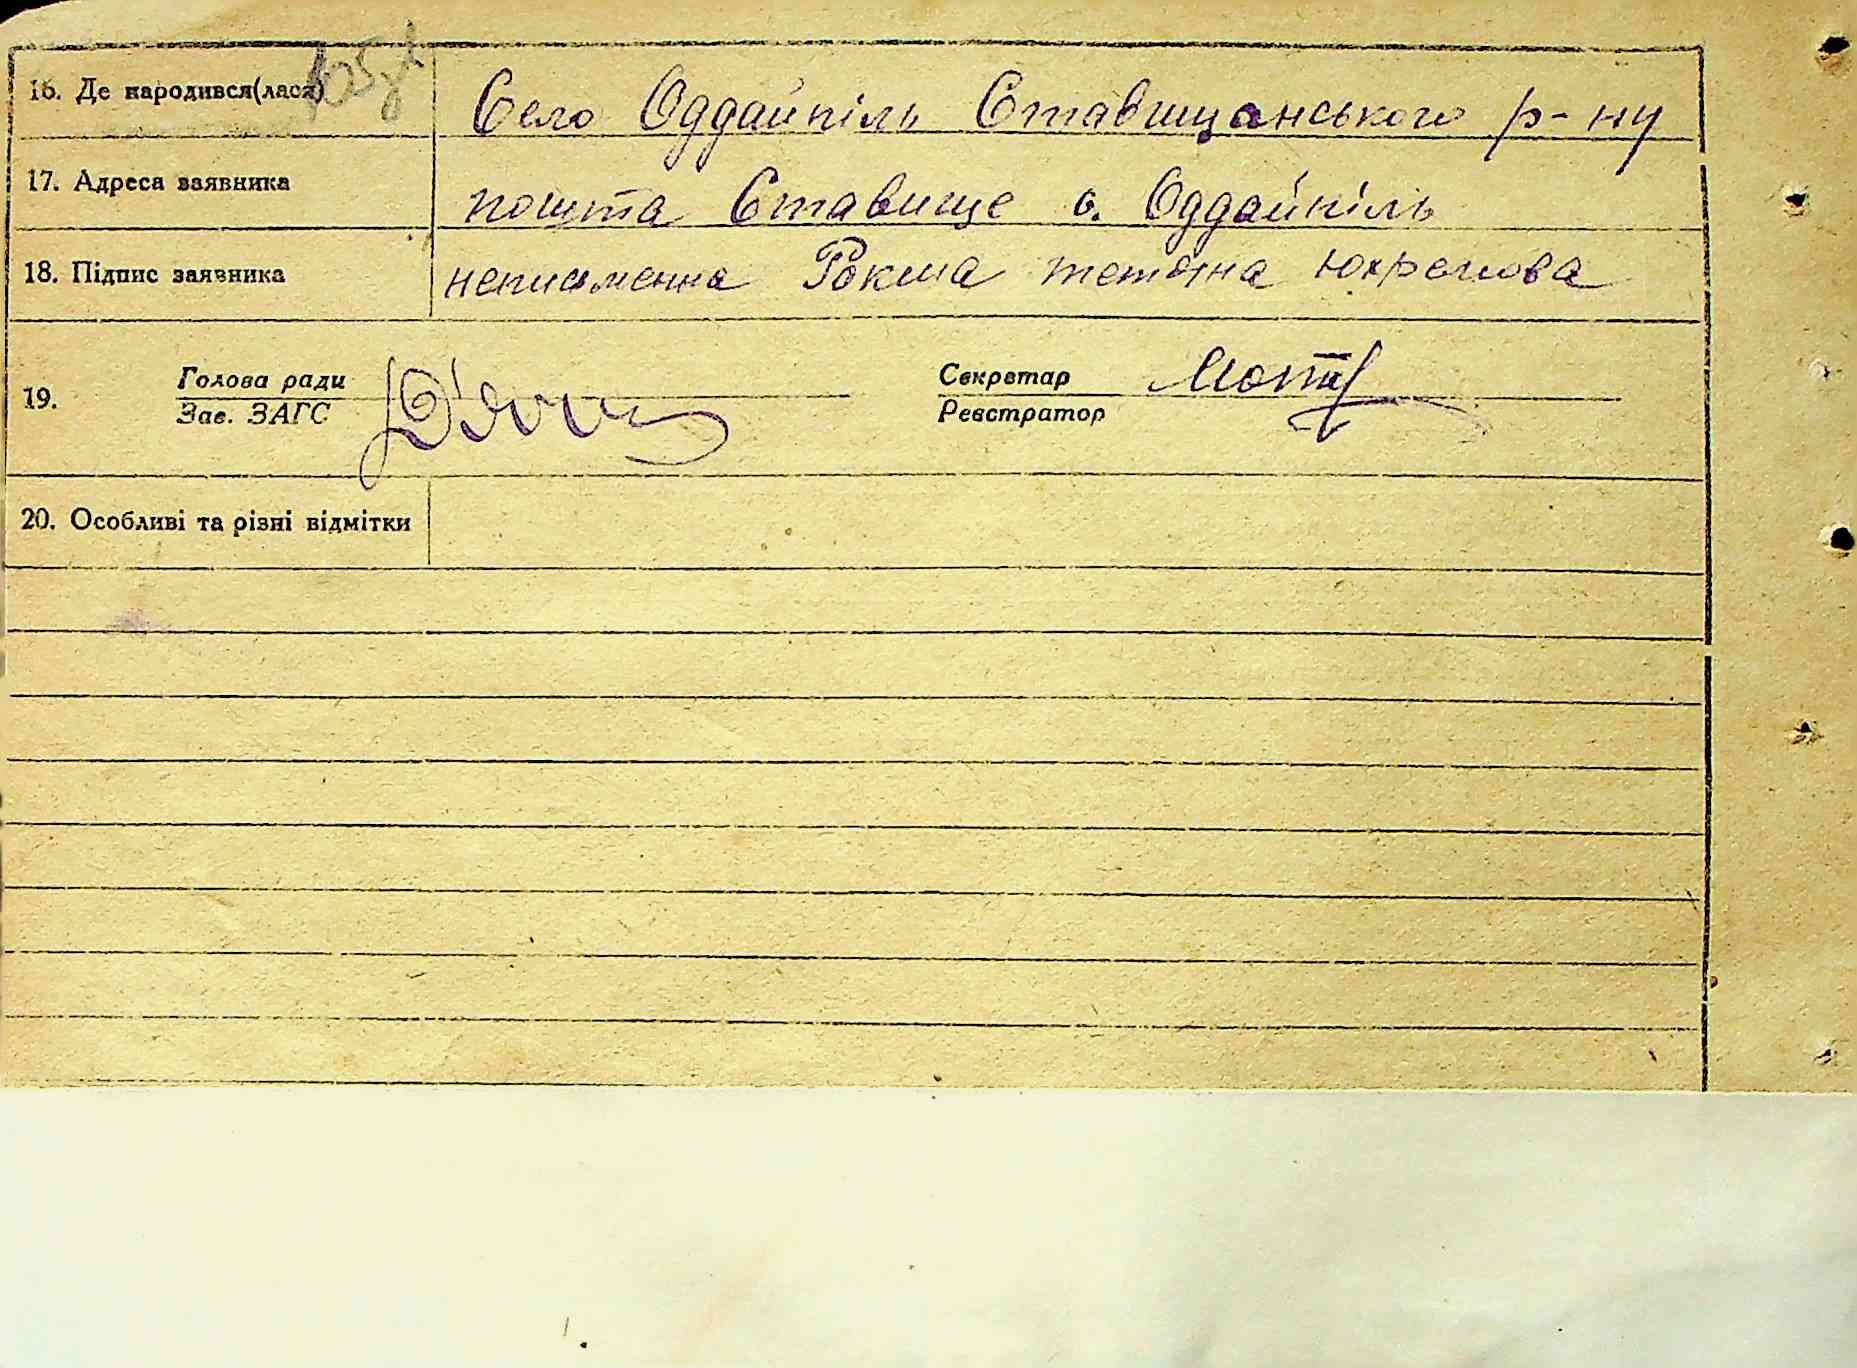 16. Де народився(лася) Село Оддайпіль Ставищанського р-ну
17. Адреса заявника пошта Ставище с. Оддайпіль
18. Підпис заявника неписьменна Рокша Тетяна Юхремова
19. Голова ради Секретар
Зав. ЗАГС Реєстратор
20. Особливі та різні відмітки